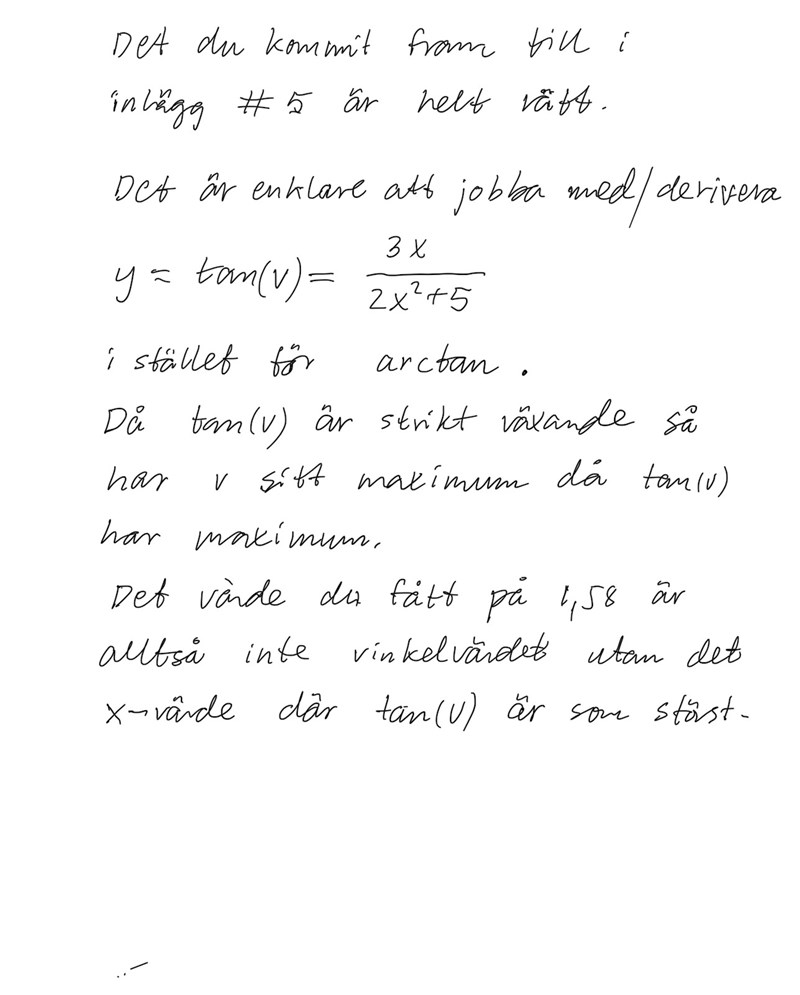 Det du kommit fram till i
inlägg #5 är helt rätt.
Det är enklare att jobba med/derivera
y = tan(v) = 3x / (2x²+5)
i stället för arctan.
Då tan(v) är strikt växande så
har v sitt maximum då tan(v)
har maximum.
Det värde du fått på 1,58 är
alltså inte vinkelvärdet utan det
x-värde där tan(v) är som störst.